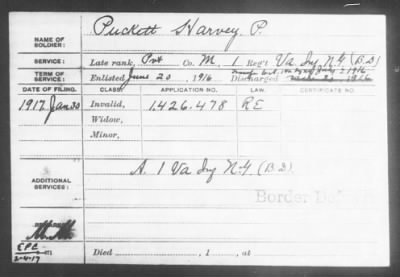 Puckett Harvey P.
NAME OF SOLDIER:
SERVICE: Late rank, Pvt Co. M, 1 Reg't Va Iny N.G. (B.D)
TERM OF SERVICE: Enlisted June 20, 1916 Discharged
DATE OF FILING. CLASS. APPLICATION NO. LAW. CERTIFICATE NO.
1917 Jan 30 Invalid, 1,426,478 RE
Widow,
Minor,
ADDITIONAL SERVICES: A. 1 Va Iny N.G. (B D)
Border
REMARKS:
E.P.C.
2-4-17
Died , 1 , at